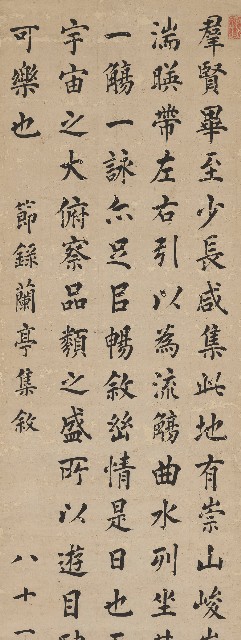 羣賢畢至少長咸集此地有崇山峻
湍暎帶左右引以為流觴曲水列坐
一觴一詠亦足㠯暢敘幽情是日也
宇宙之大俯察品類之盛所以遊目
可樂也 節錄蘭亭集敘 八十一